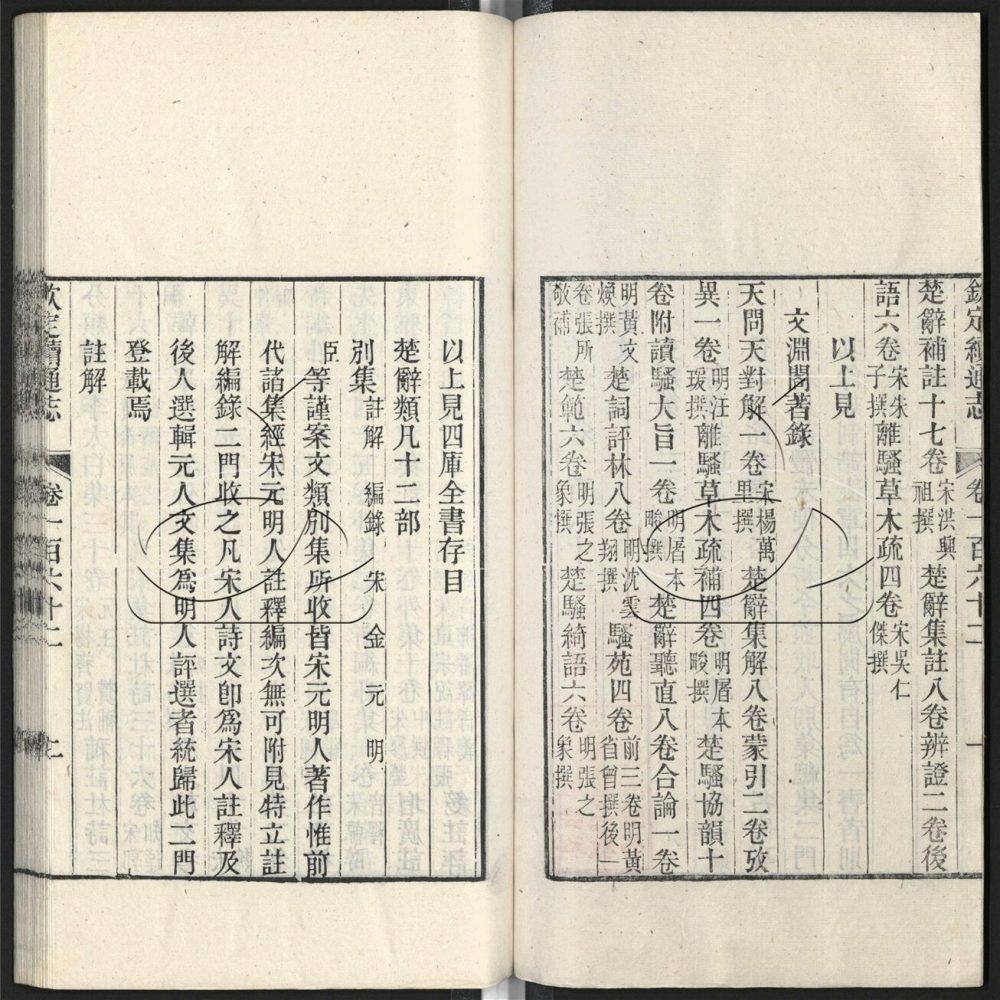 欽定續通志 卷一百六十二 一
楚辭補註十七卷宋洪興祖撰 楚辭集註八卷辨證二卷後
語六卷宋朱子撰離騷草木疏四卷宋吳仁傑撰
以上見
文淵閣著錄
天問天對解一卷宋楊萬里撰 楚辭集解八卷蒙引二卷攷
異一卷明汪瑗撰離騷草木疏補四卷明屠本畯撰楚騷協韻十
卷附讀騷大旨一卷明屠本畯撰 楚辭聽直八卷合論一卷
明黃文煥撰 楚詞評林八卷明沈雲翔撰 騷苑四卷前三卷明黃省曾撰後一
卷張所敬補 楚範六卷明張之象撰 楚騷綺語六卷明張之象撰
以上見四庫全書存目
楚辭類凡十二部
別集註解 編錄 宋 金 元 明
臣等謹案文類別集所收皆宋元明人著作惟前
代諸集經宋元明人註釋編次無可附見特立註
解編錄二門收之凡宋人詩文卽爲宋人註釋及
後人選輯元人文集爲明人評選者統歸此二門
登載焉
註解
欽定續通志 卷一百六十二